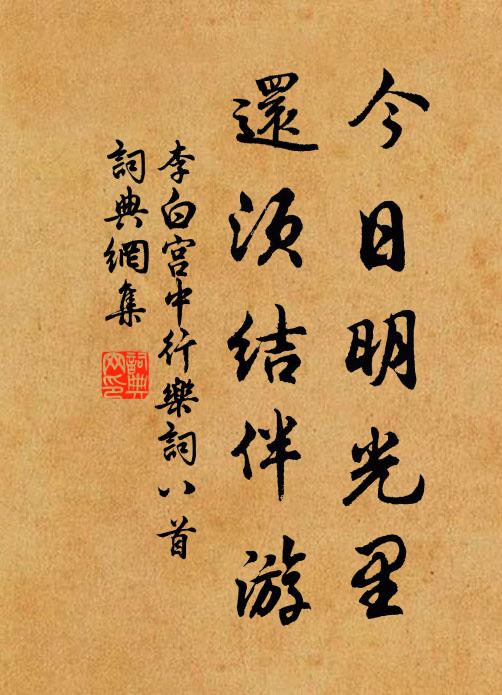 今日明光里
還須結伴游
李白宫中行樂詞八首
詞典網集
詞典網印